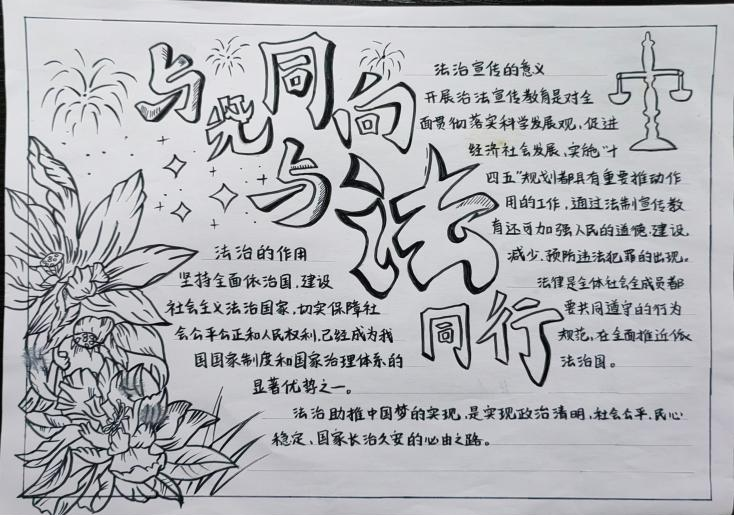 与光同向
与法同行
法治宣传的意义
开展治法宣传教育是对全
面贯彻落实科学发展观，促进
经济社会发展，实施“十
四五”规划都具有重要推动作
用的工作，通过法制宣传教
育还可加强人民的道德，建设，
减少，预防违法犯罪的出现。
法律是全体社会全成员都
要共同遵守的行为
规范，在全面推近依
法治国。
法治的作用
坚持全面依治国，建设
社会主义法治国家，切实保障社
会公平公正和人民权利，已经成为我
国国家制度和国家治理体系的
显著优势之一。
法治助推中国梦的实现，是实现政治清明，社会公平，民心
稳定，国家长治久安的必由之路。